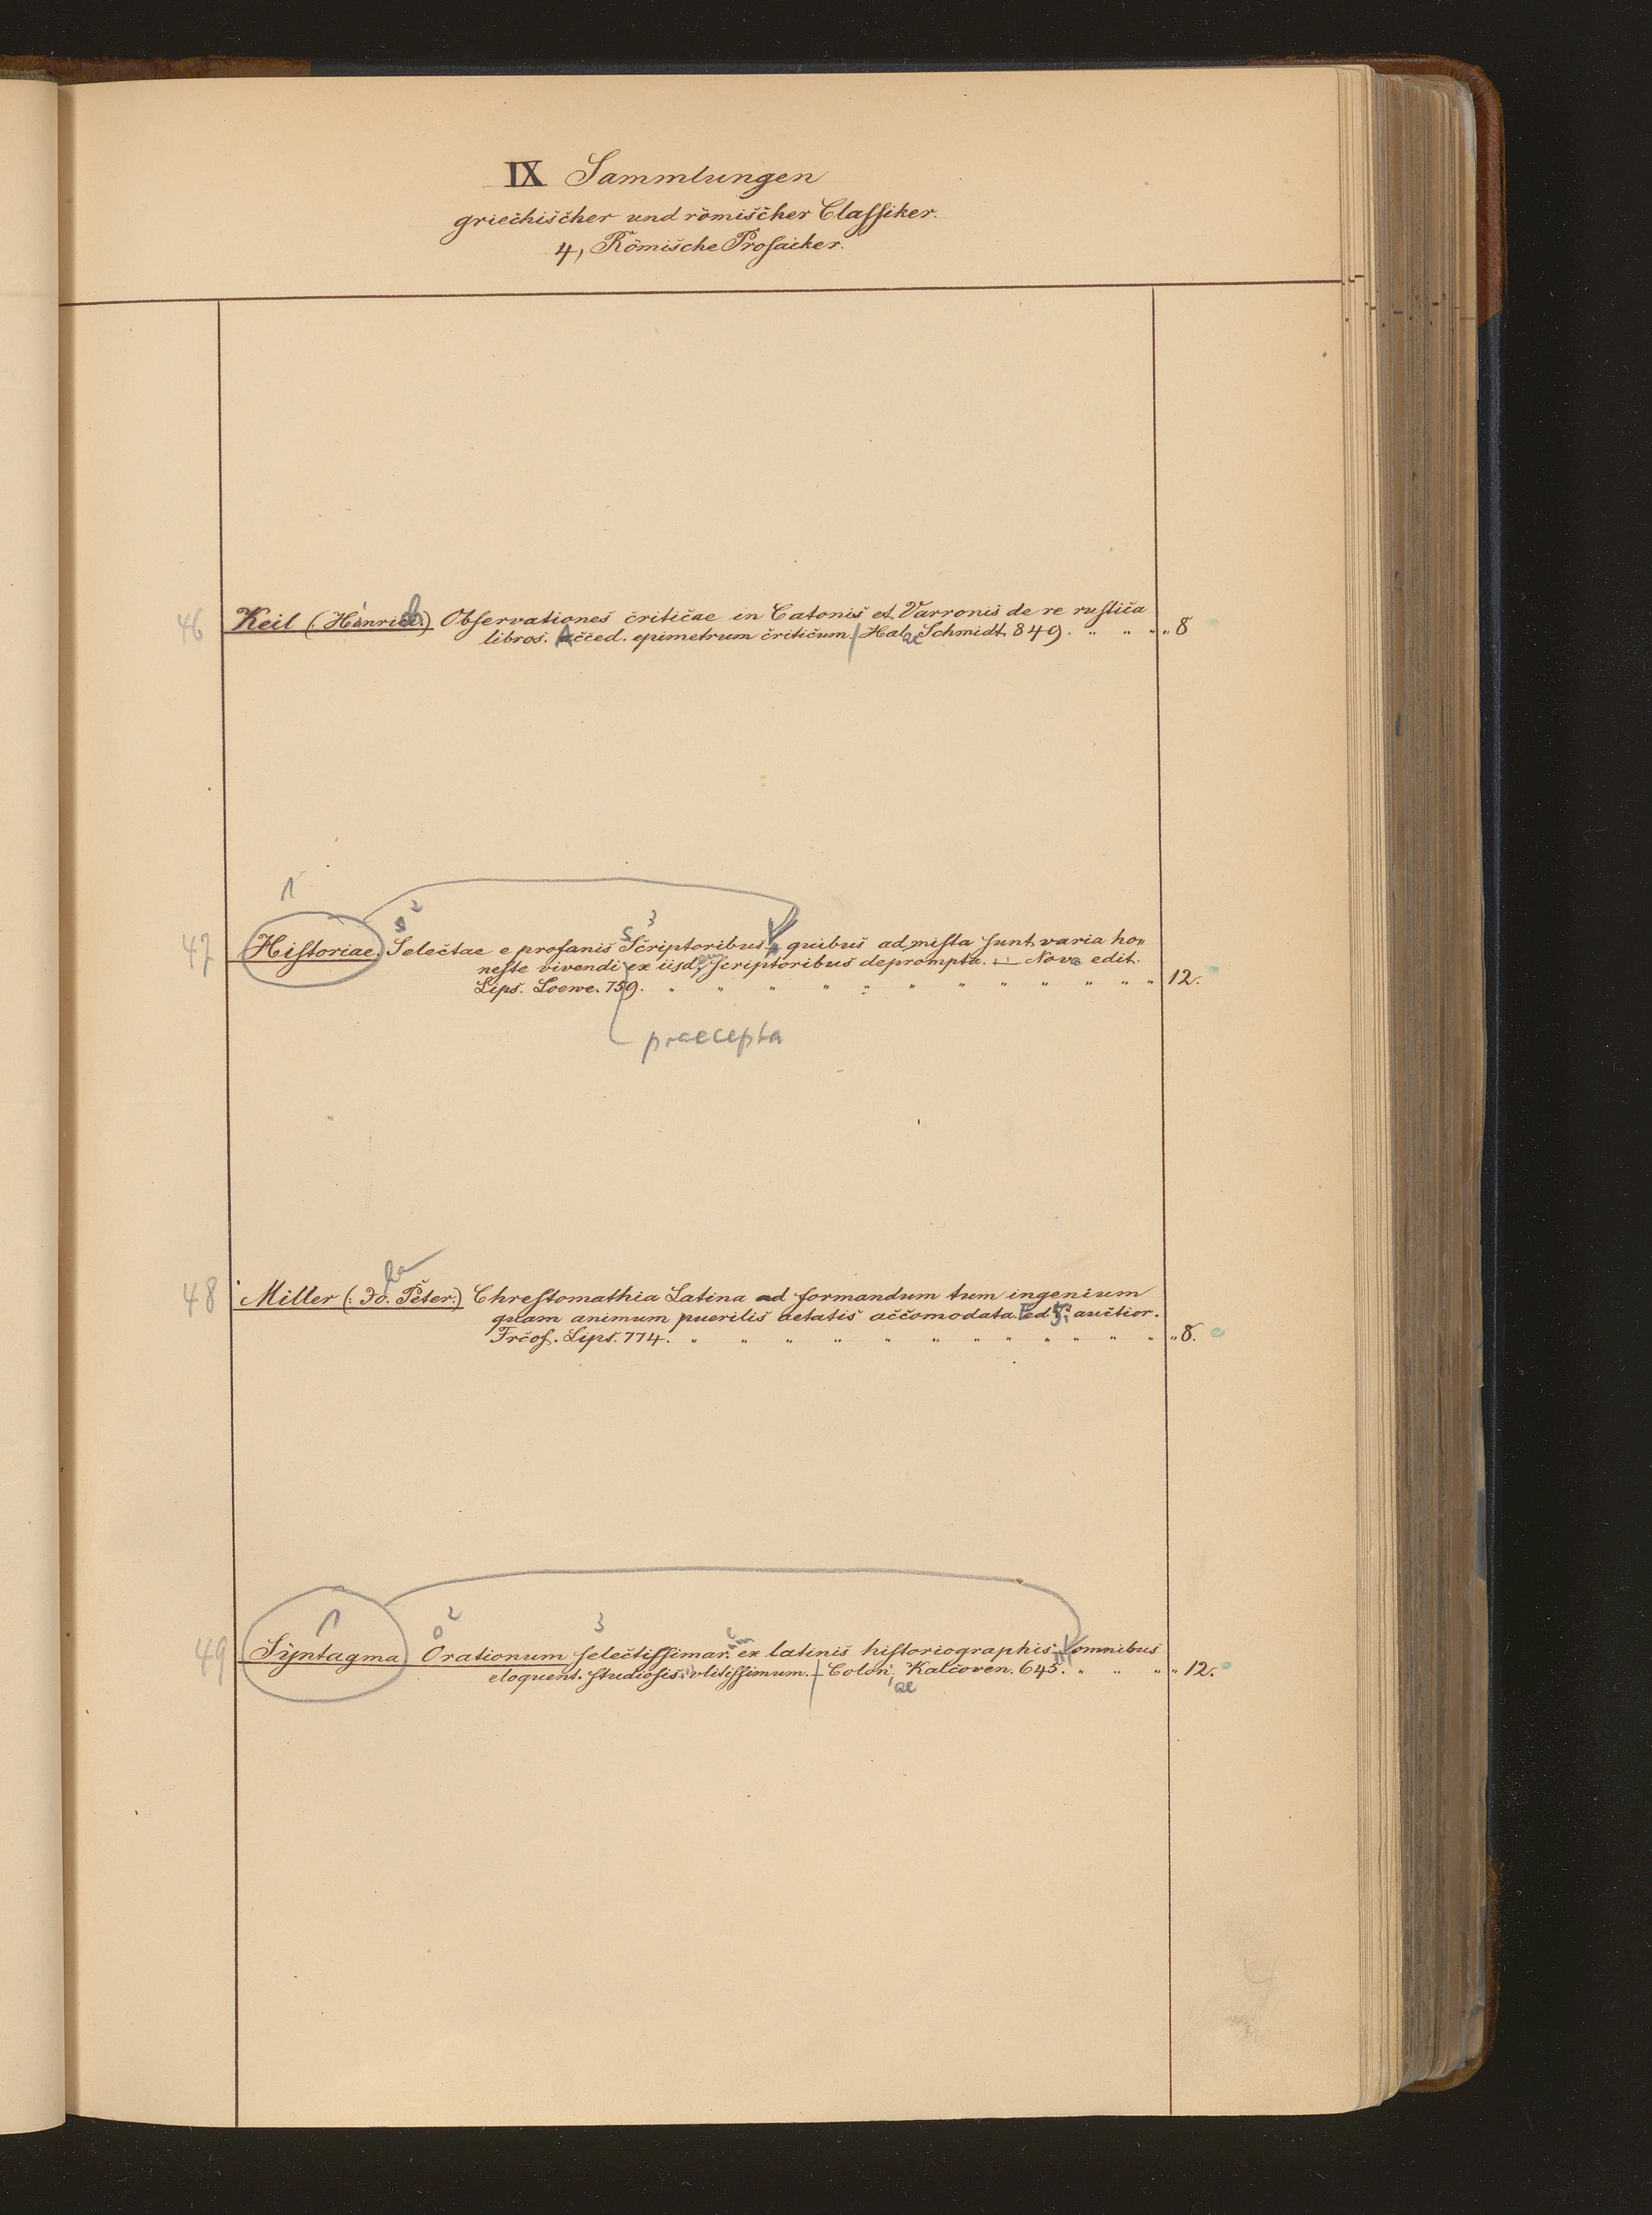 IX Sammlungen
griechischer und römischer Classiker.
4, Römische Prosaiker.
46 Keil (: Henrich:) Observationes criticae in Catonis et Varronis de re rustica
libros. Acced. epimetrum criticum. / Halae Schmidt. 849. " " " " 8
1 2 3
47 Historiae. Selectae e profanis Scriptoribus, quibus admista sunt varia ho„
neste vivendi ex iisd. scriptoribus deprompta. — Nova edit.
Lips. Loewe. 759. " " " " " " " " " " " " 12.
praecepta
48 Miller (: Jo. Peter:) Chrestomathia Latina ad formandum tum ingenium
quam animum puerilis aetatis accomodata. Ed. 3. auctior.
Frcof. Lips. 774. " " " " " " " " " " " " 8.
1 2 3
49 Syntagma Orationum selectissimar. ex latinis historiographis omnibus
eloquent. studiosis vlitissimum. — Colon. Kalcoven. 645. " " " " 12.
ae